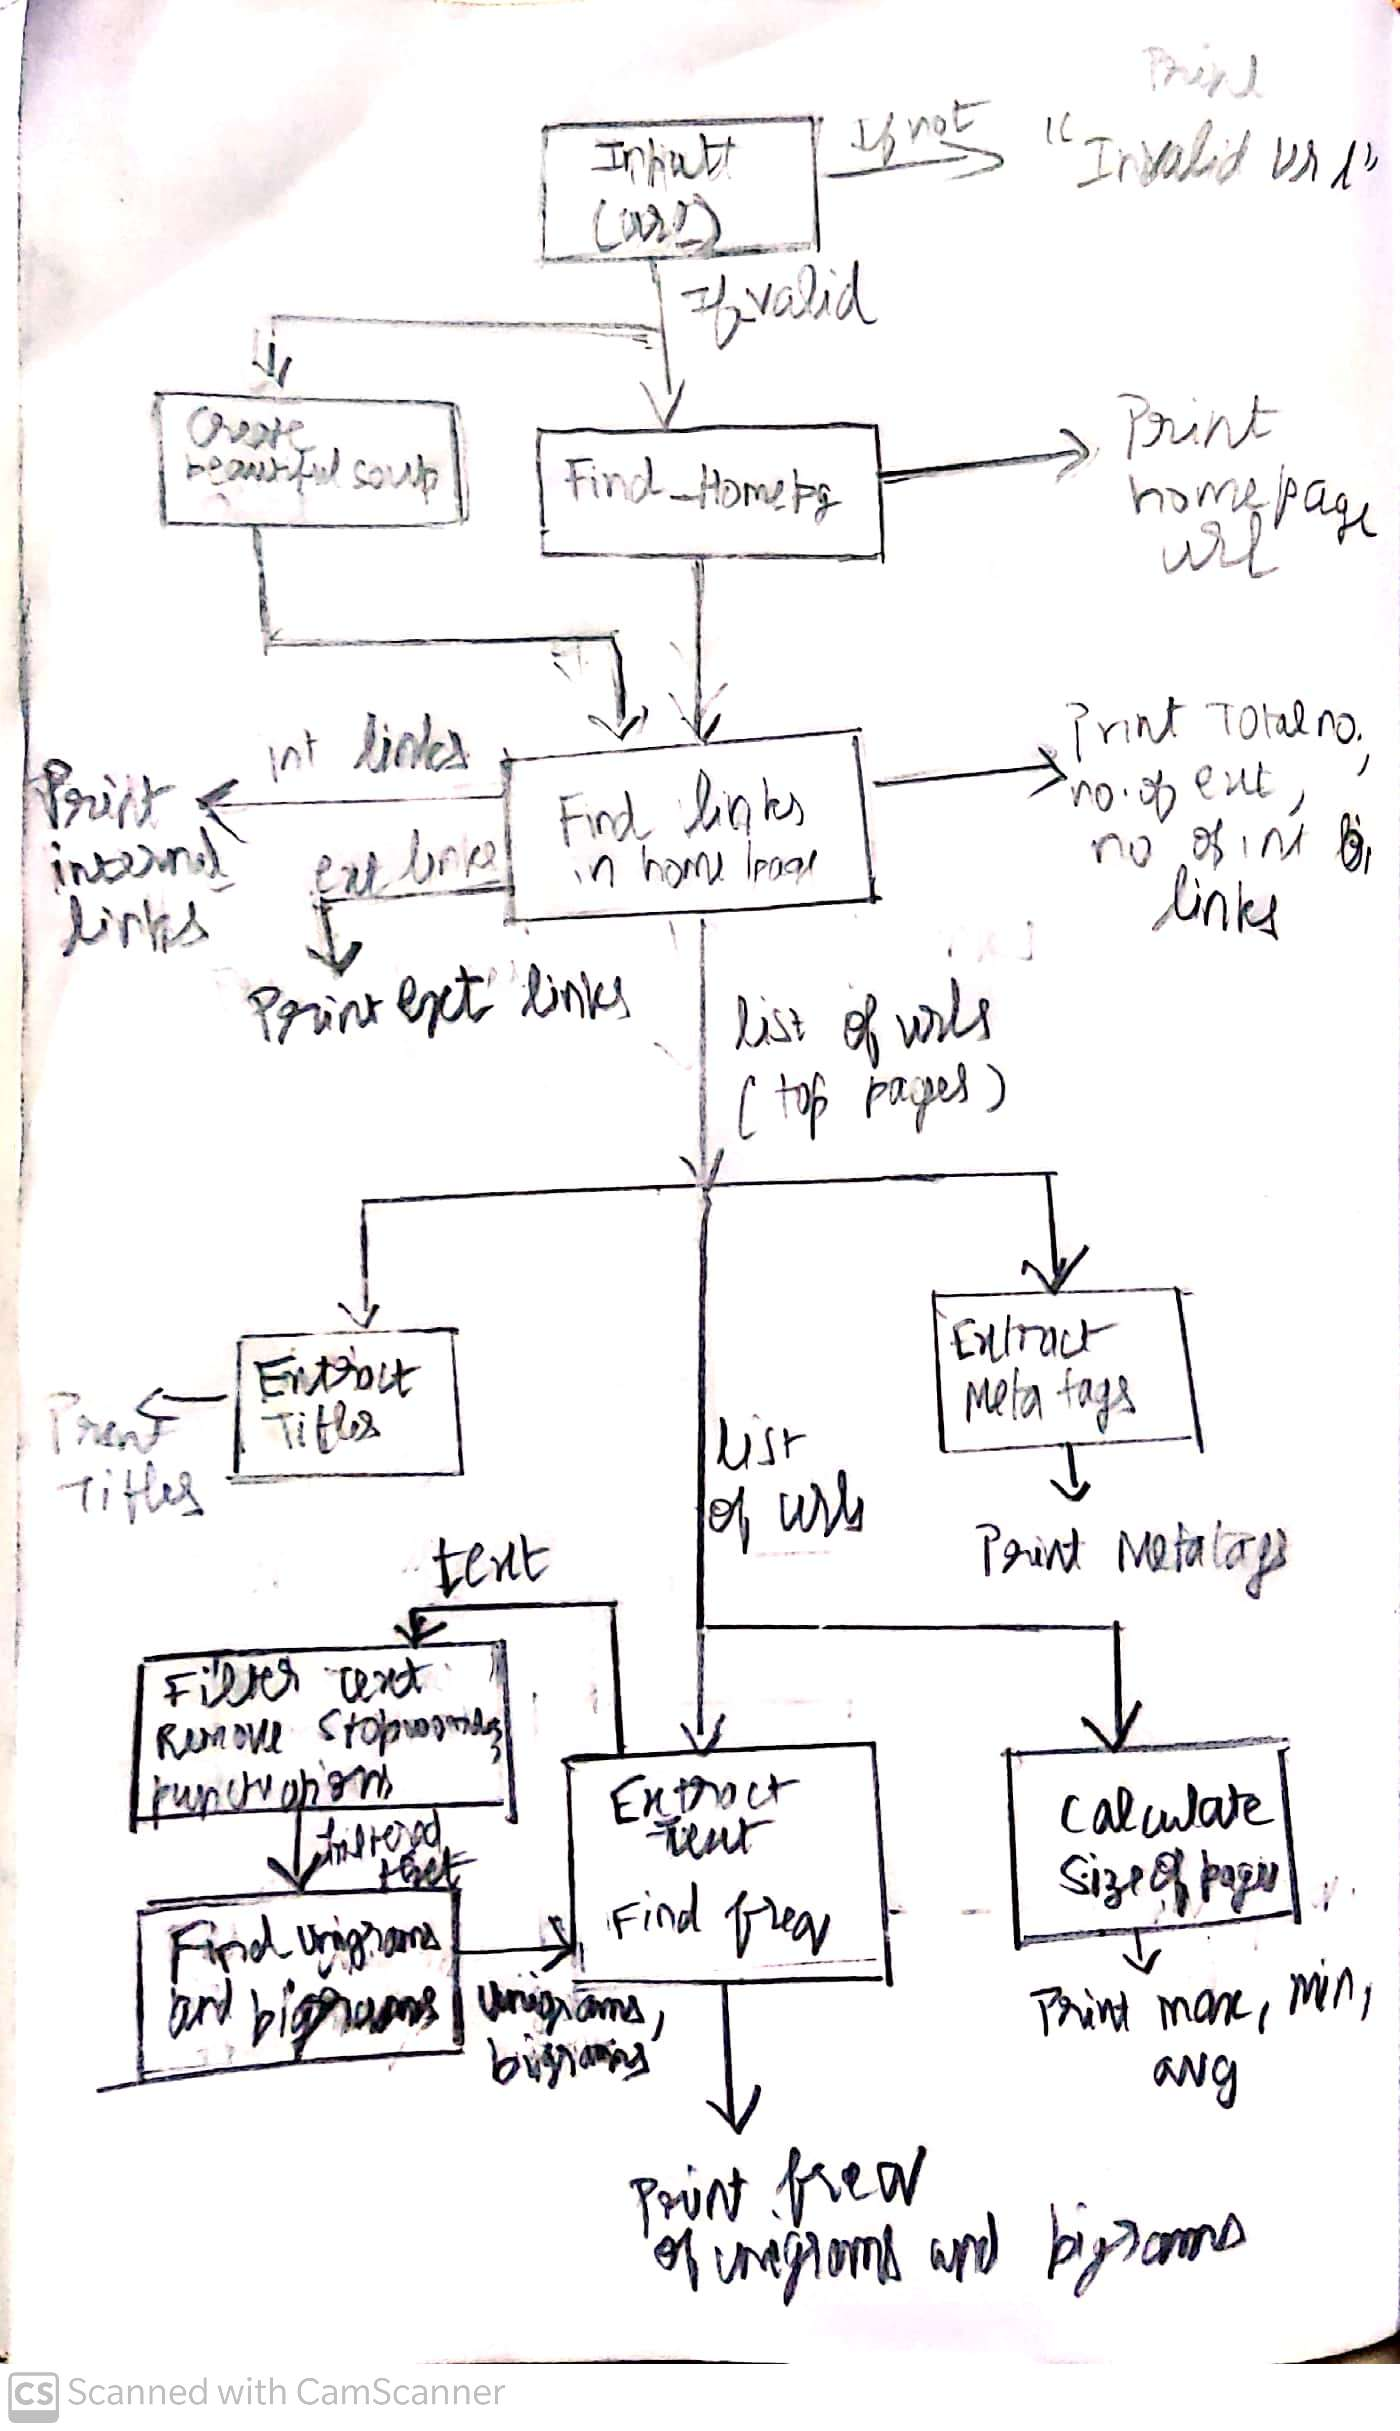 Print
Input
(url)
If not
"Invalid url"
If valid
Create
beautiful soup
Find_Homepg
Print
homepage
url
int links
Print
internal
links
ext links
Print ext links
Find links
in home page
Print Total no,
no. of ext,
no of int
links
list of urls
(top pages)
Extract
Titles
Print
Titles
Extract
Meta tags
Print Metatags
list
of urls
text
Filter Text
Remove stopwords,
punctuations
filtered
text
Find unigrams
and bigrams
unigrams,
bigrams
Extract
Text
Find freq
Calculate
Size of pages
Print max, min,
avg
Print freq
of unigrams and bigrams
CS Scanned with CamScanner